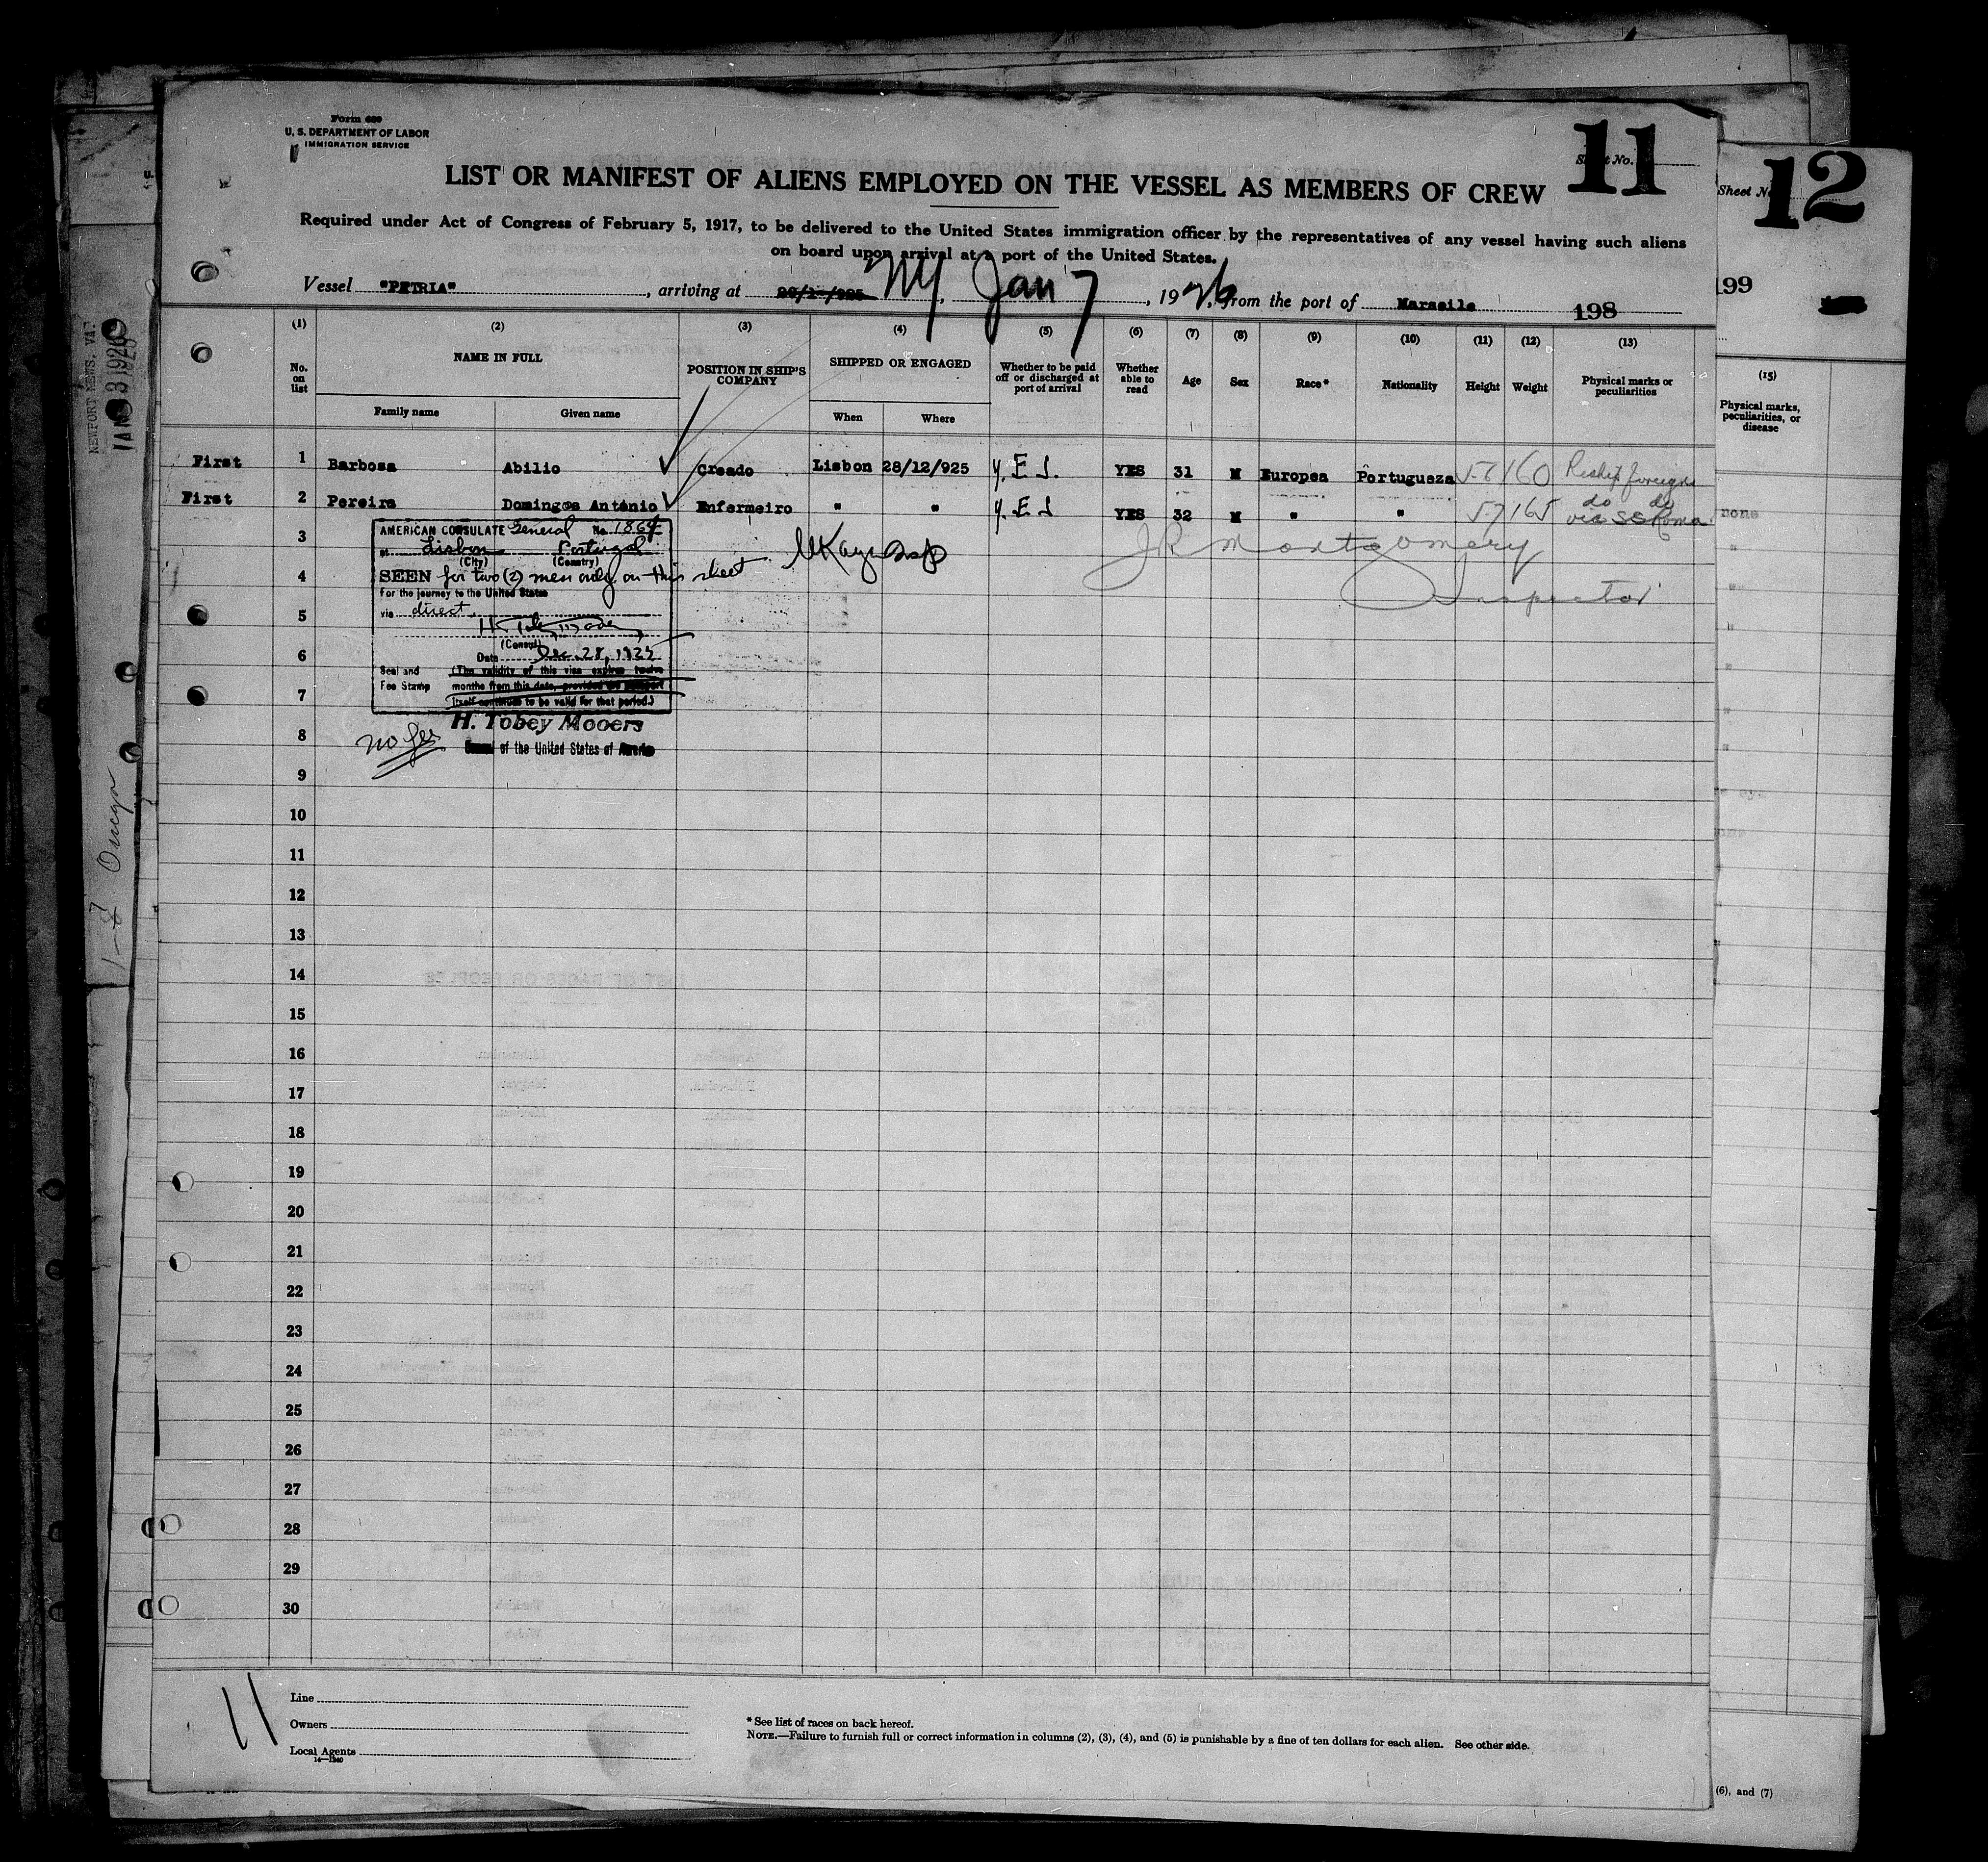 Form 680
U. S. DEPARTMENT OF LABOR
IMMIGRATION SERVICE
Sheet No. 11
LIST OR MANIFEST OF ALIENS EMPLOYED ON THE VESSEL AS MEMBERS OF CREW
Required under Act of Congress of February 5, 1917, to be delivered to the United States immigration officer by the representatives of any vessel having such aliens
on board upon arrival at a port of the United States.
Vessel "PETRIA", arriving at NY, Jan 7, 1926, from the port of Marseile
198
(1) (2) (3) (4) (5) (6) (7) (8) (9) (10) (11) (12) (13)
No. on list
NAME IN FULL
Family name
Given name
POSITION IN SHIP'S COMPANY
SHIPPED OR ENGAGED
When
Where
Whether to be paid off or discharged at port of arrival
Whether able to read
Age
Sex
Race*
Nationality
Height
Weight
Physical marks or peculiarities
First 1 Barbosa Abilio Creado Lisbon 28/12/925 YES 31 M Europea Portugueza 160 Reship foreign
First 2 Pereira Domingos António Enfermeiro " " YES 32 M " " 57 165 do do
via SS Roma
3
4
5
6
7
8
9
10
11
12
13
14
15
16
17
18
19
20
21
22
23
24
25
26
27
28
29
30
AMERICAN CONSULATE General No. 1864
at Lisbon Portugal
(City) (Country)
SEEN for two (2) men only on this sheet
For the journey to the United States
via direct
(Consul)
Date Dec. 28, 1925
Seal and Fee Stamp
(The validity of this visa expires twelve
months from this date, provided the passport
itself continues to be valid for that period.)
H. Tobey Mooers
Consul of the United States of America
no fee
JR Montgomery
Inspector
11
Line
Owners
Local Agents
14—1240
* See list of races on back hereof.
NOTE.—Failure to furnish full or correct information in columns (2), (3), (4), and (5) is punishable by a fine of ten dollars for each alien. See other side.
Sheet No. 12
199
(15)
Physical marks, peculiarities, or disease
none
(6), and (7)
NEWPORT NEWS, VA.